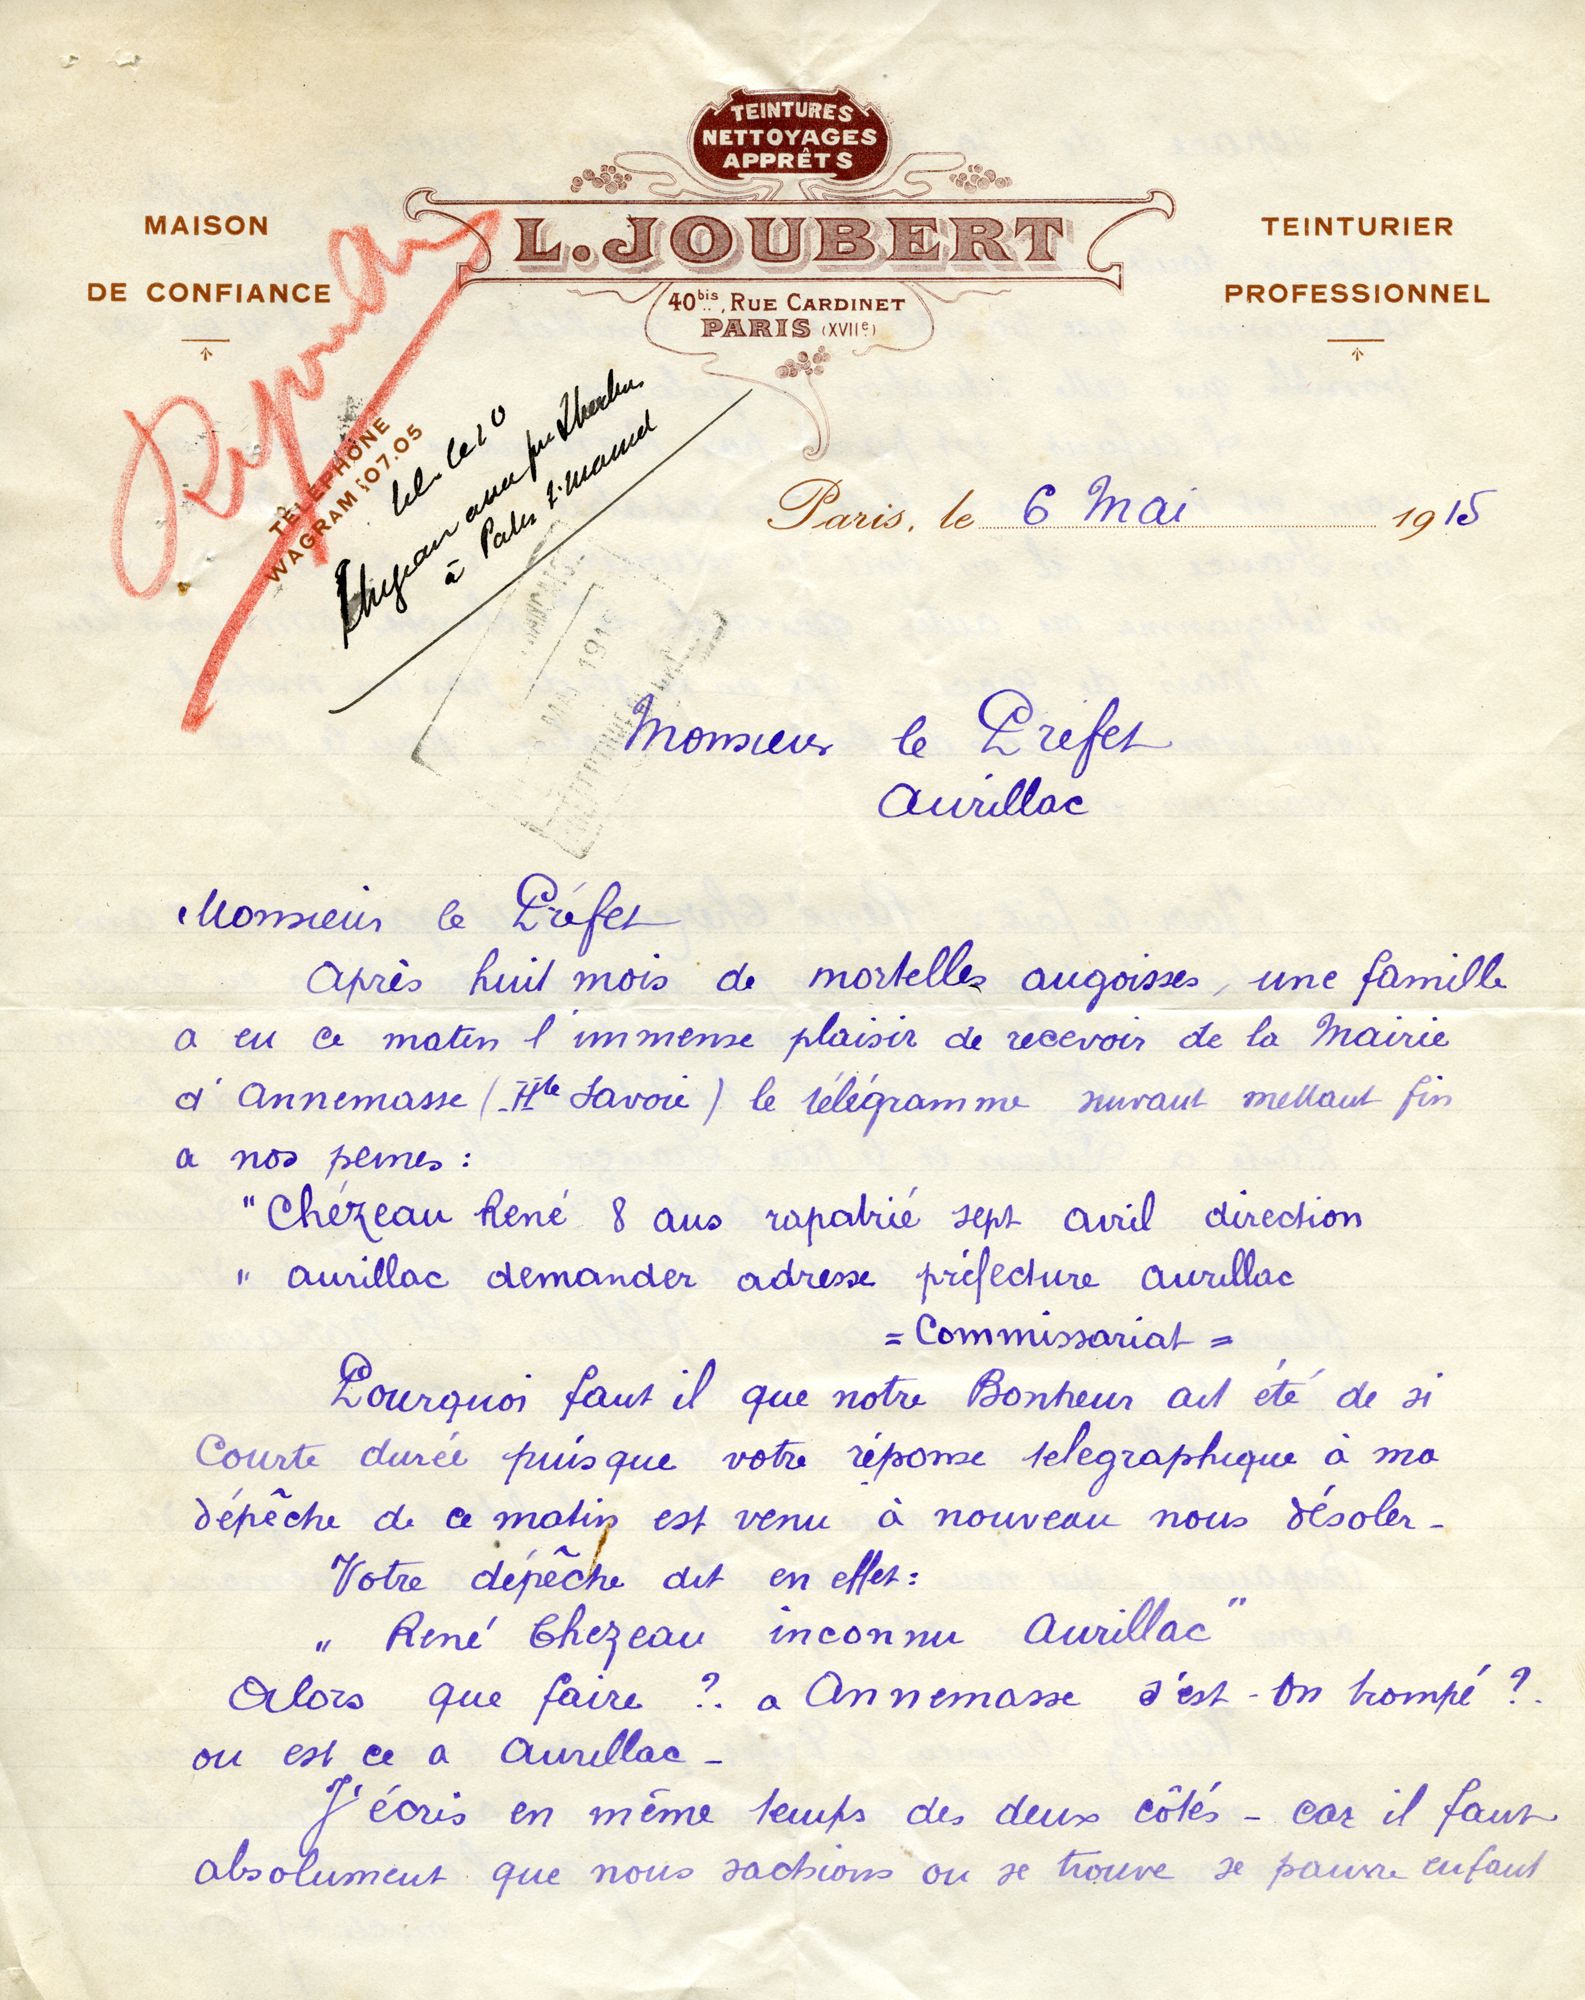 TEINTURES
NETTOYAGES
APPRÊTS
MAISON
DE CONFIANCE
L. JOUBERT
40bis, RUE CARDINET
PARIS (XVIIe)
TEINTURIER
PROFESSIONNEL
TÉLÉPHONE
WAGRAM 07.05
Paris, le 6 Mai 1915
Monsieur le Préfet
Aurillac
Monsieur le Préfet
Après huit mois de mortelles angoisses, une famille
a eu ce matin l'immense plaisir de recevoir de la Mairie
d'Annemasse (Hte Savoie) le télégramme suivant mettant fin
a nos peines :
"Chézeau René 8 ans rapatrié sept avril direction
" aurillac demander adresse préfecture aurillac
= Commissariat =
Pourquoi faut il que notre Bonheur ait été de si
Courte durée puisque votre réponse telegraphique à ma
dépêche de ce matin est venu à nouveau nous désoler -
Votre dépêche dit en effet :
" René Chezeau inconnu Aurillac"
Alors que faire ? a Annemasse s'est-on trompé ?.
ou est ce a Aurillac -
J'écris en même temps des deux côtés - car il faut
absolument que nous sachions ou se trouve se pauvre enfant